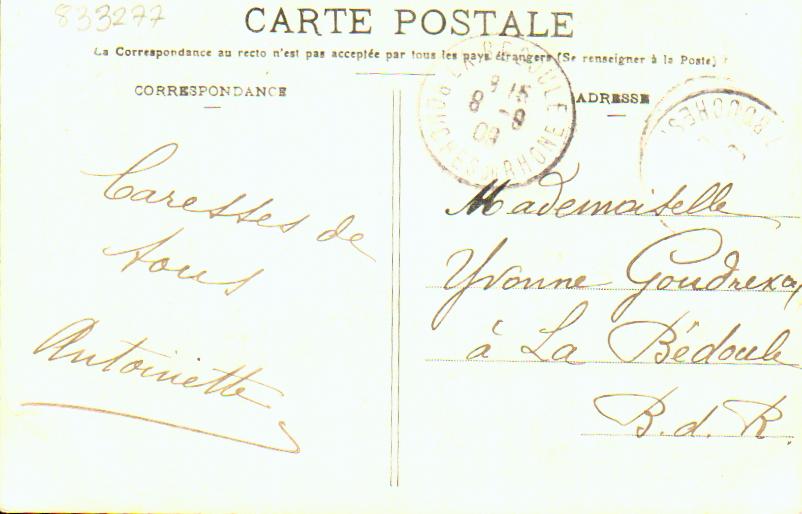 833277
CARTE POSTALE
La Correspondance au recto n'est pas acceptée par tous les pays étrangers (Se renseigner à la Poste)
CORRESPONDANCE
ADRESSE
LA BEDOULE
8 15
8 -9
09
BOUCHES DU RHONE
BOUCHES
Caresses de
tous
Antoinette
Mademoiselle
Yvonne
à La Bédoule
B. d. R.